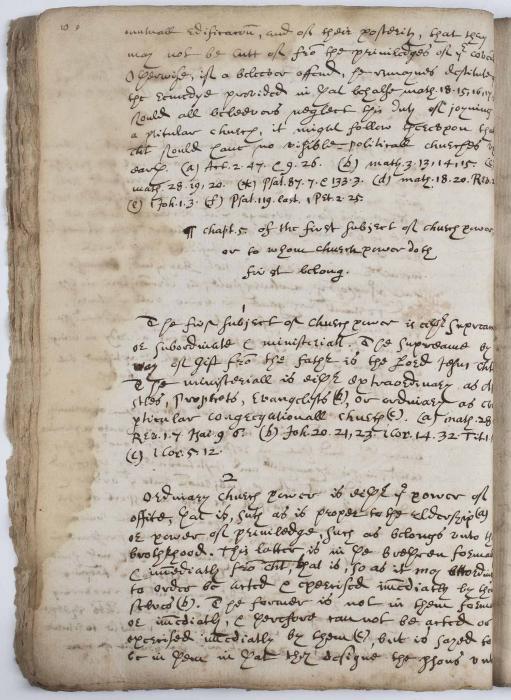 mutuall edification, and of their posterity, that they
may not be cutt of fro the priviledges of ye
Otherwise, if a beleever offend, he remaynes destitute
the remedye provided in yat behalfe math. 18. 15, 16, 17
should all beleevers neglect this duty of joyning
a pticular church, it might follow thereupon that
cht should have no visible politicall churches
earth. (a) Act. 2. 47. & 9. 26. (b) math. 3. 13, 14, 15
math. 28. 19, 20. (c) Psal. 87. 7. & 133. 3. (d) math. 18. 20.
(e) 1 Joh. 1. 3. (f) Psal. 119. last. 1 Pet. 2. 25.
¶ chapt. 5. of the first subject of church power
or to whom church power doth
first belong.
1
The first subject of church power is eithr supream
or subordinate & ministeriall. The supreame by
way of gift fro the fathr is the Lord Jesus cht
The ministeriall is eithr extraordinary as
stles, Prophets, Evangelists, or ordinary as
pticular congregationall church. (a) math. 28
Rev. 1. 7. Isai. 9. 6. (b) Joh. 20. 21, 23. 1 Cor. 14. 32. Tit. 1
(c) 1 Cor. 5. 12.
2
Ordinary church power is eithr ye power of
office, yat is, such as is proper to the eldership (a)
or power of priviledge, such as belongs unto
brothrhood. This latter is in ye brethren
& imediatly fro cht, that is, so as it may
to order be acted & exercised imediatly by
selves (b). The former is not in them
or imediatly, & therfore can not be acted or
exercised imediatly by them (c), but is sayed to
be in them in yat they designe the psons unt